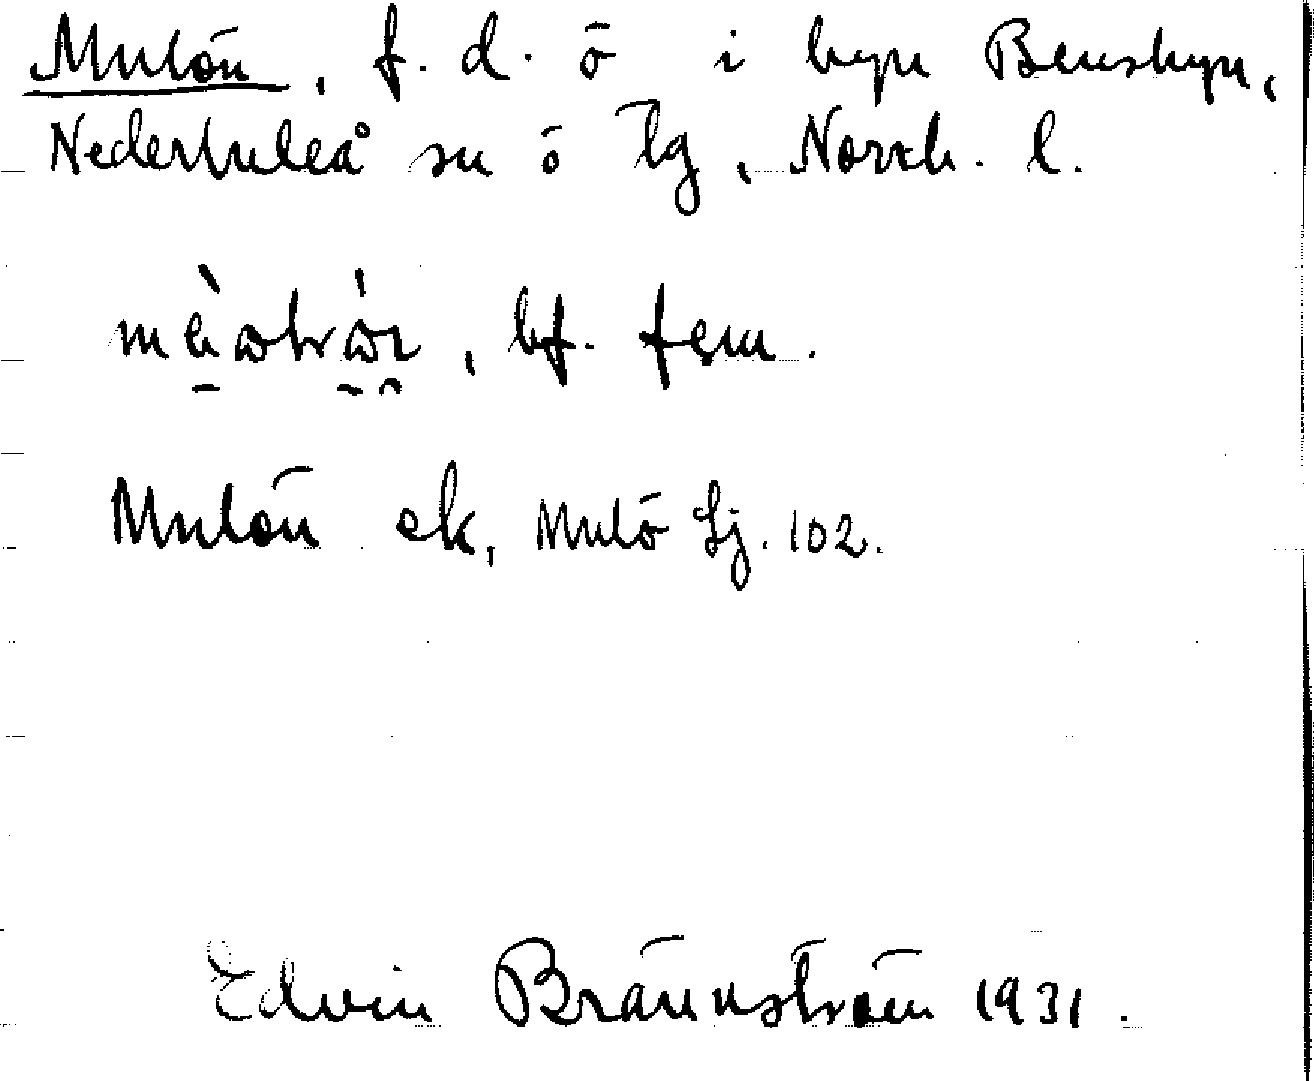 Mulön, f. d. ö i byn Bensbyn,
Nederluleå sn ö tg, Norrb. l.
, bf. fem.
Mulön ek, Mulö Lj. 102.
Edvin Brännström 1931.